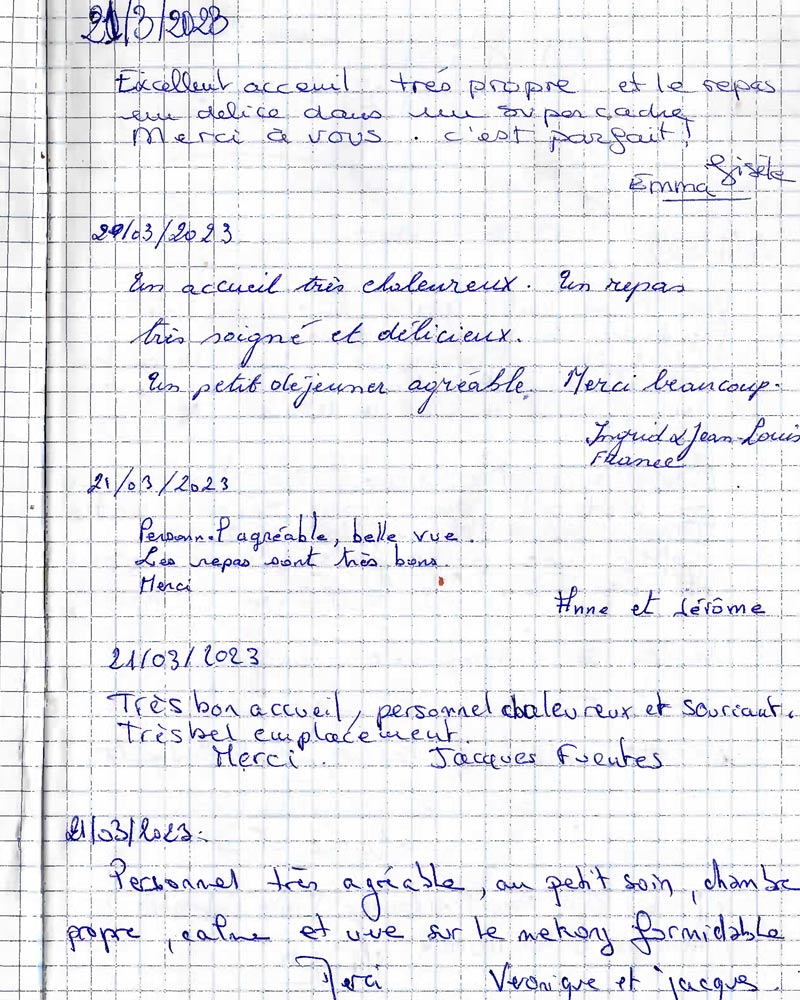 21/3/2023
Excellent acceuil très propre et le repas
un délice dans un super cadre
Merci à vous. c'est parfait!
Gisèle
Emma
21/03/2023
Un accueil très chaleureux. Un repas
très soigné et délicieux.
Un petit déjeuner agréable. Merci beaucoup.
Ingrid & Jean-Louis
France
21/03/2023
Personnel agréable, belle vue.
Les repas sont très bons.
Merci
Anne et Jérôme
21/03/2023
Très bon accueil, personnel chaleureux et souriant.
Très bel emplacement.
Merci. Jacques Fuentes
21/03/2023.
Personnel très agréable, au petit soin, chambre
propre, calme et vue sur le mekong formidable
Merci Veronique et jacques.